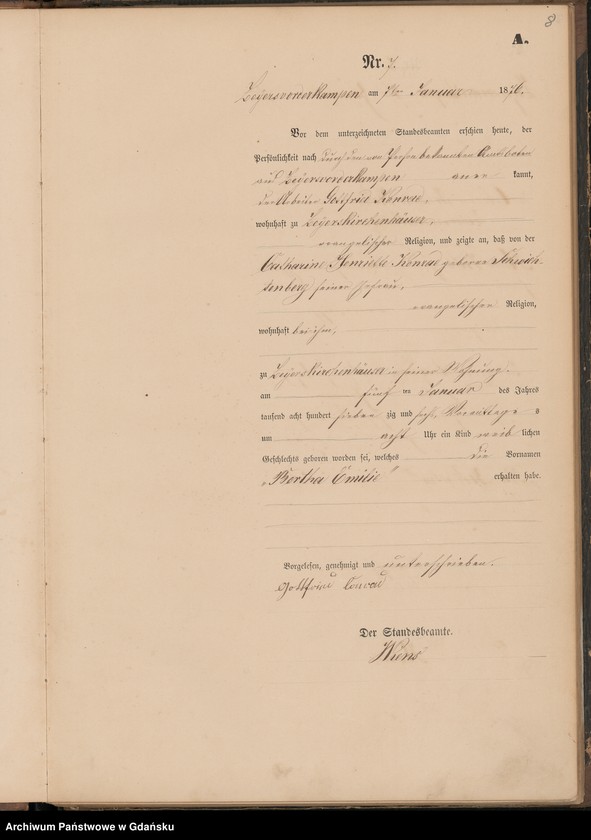 8
A.
Nr. 7.
Zeyersvorderkampen am 7ten Januar 1876.
Vor dem unterzeichneten Standesbeamten erschien heute, der
Persönlichkeit nach durch den von Person bekannten Amtsboten
aus Zeyersvorderkampen aner kannt,
der Arbeiter Gottfried Konrad,
wohnhaft zu Zeyerskirchenhäuser,
evangelischer Religion, und zeigte an, daß von der
Catharine Henriette Konrad geborne
seiner Ehefrau,
evangelischer Religion,
wohnhaft bei ihm,
zu Zeyerskirchenhäuser in seiner Wohnung.
am fünf ten Januar des Jahres
tausend acht hundert sieben zig und sechs, Vormittags
um acht Uhr ein Kind weib lichen
Geschlechts geboren worden sei, welches die Vornamen
„Bertha Emilie" erhalten habe.
Vorgelesen, genehmigt und unterschrieben.
Gottfried Conrad
Der Standesbeamte.
Wiens
Archiwum Państwowe w Gdańsku